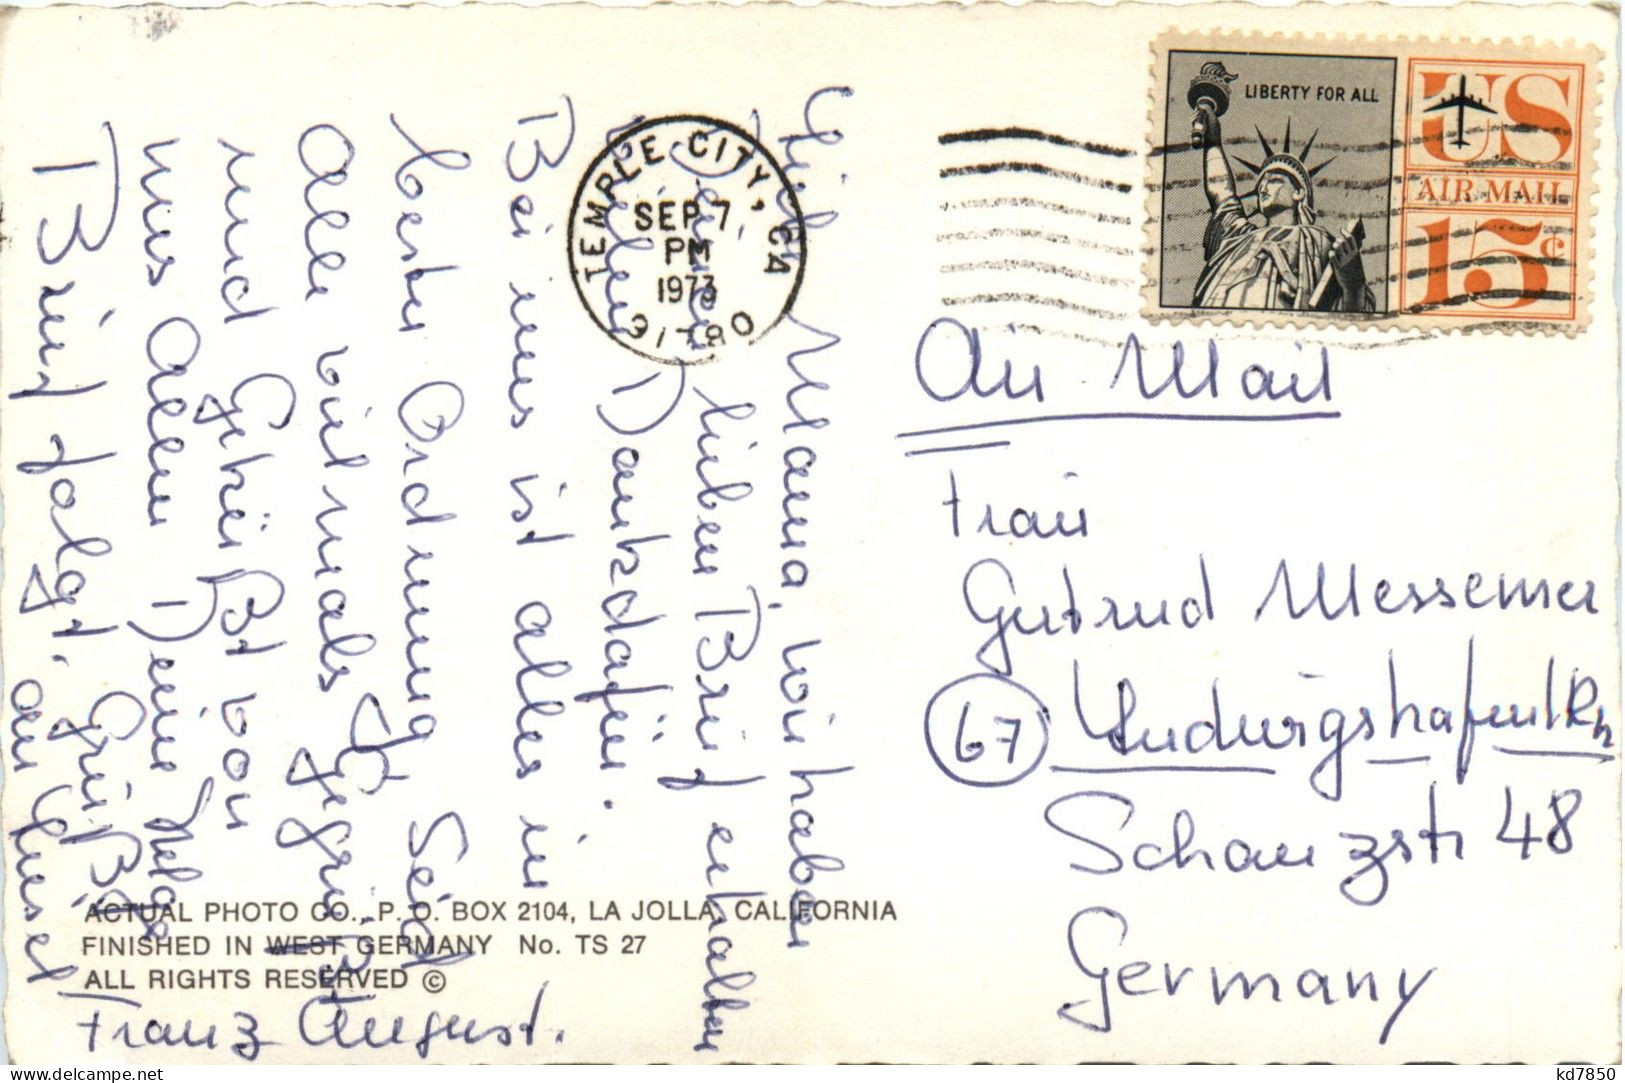 Liebe Mama, wir haben
Deinen lieben Brief erhalten
vielen Dank dafür.
Bei uns ist alles in
bester Ordnung. Seid
Alle vielmals gegrüßt
und geküßt von
uns Allen Deine Helga
Brief folgt. Grüße
an Liesel
Franz August.
TEMPLE CITY, CA
SEP 7,
PM
1973
91780
LIBERTY FOR ALL
US
AIR MAIL
15c
Air Mail
Frau
Gertrud Messemer
67 Ludwigshafen/Rh
Schanzstr 48
Germany
ACTUAL PHOTO CO., P. O. BOX 2104, LA JOLLA, CALIFORNIA
FINISHED IN WEST GERMANY No. TS 27
ALL RIGHTS RESERVED ©
delcampe.net
kd7850